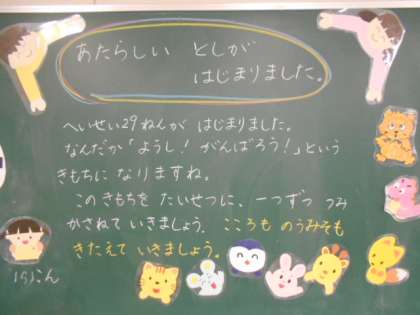 あたらしい としが
はじまりました。
へいせい29ねんが はじまりました。
なんだか「ようし！がんばろう！」という
きもちに なりますね。
このきもちを たいせつに、一つずつ つみ
かさねて いきましょう。こころも のうみそも
きたえて いきましょう。